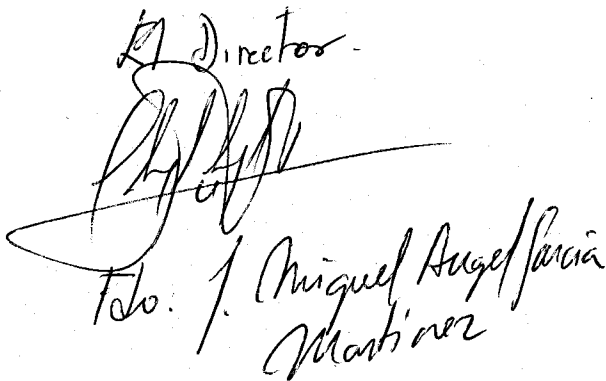 El Director.
Fdo. J. Miguel Angel Garcia
Martinez